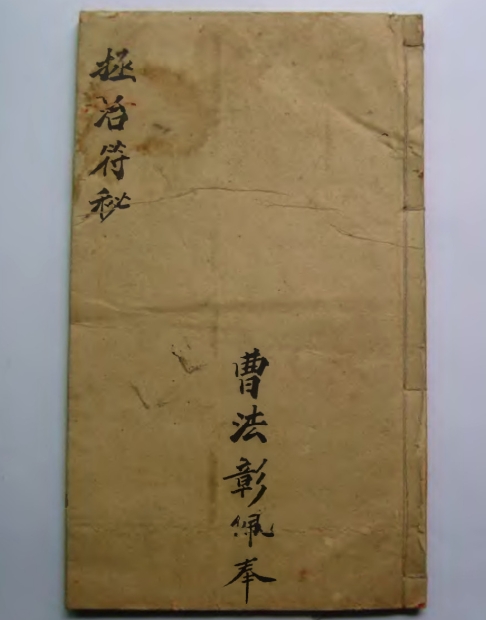 拯治符秘
曹法彰佩奉